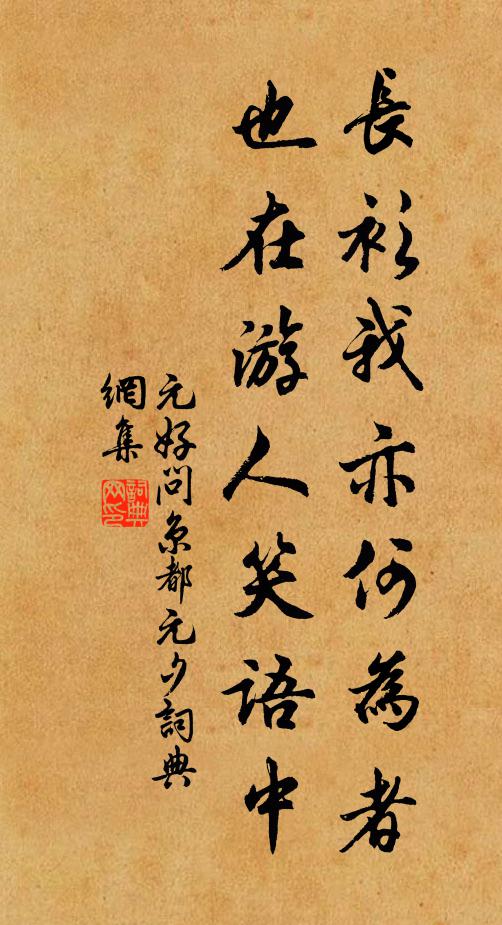 長衫我亦何為者
也在游人笑語中
元好問京都元夕詞典
網集
詞典網印